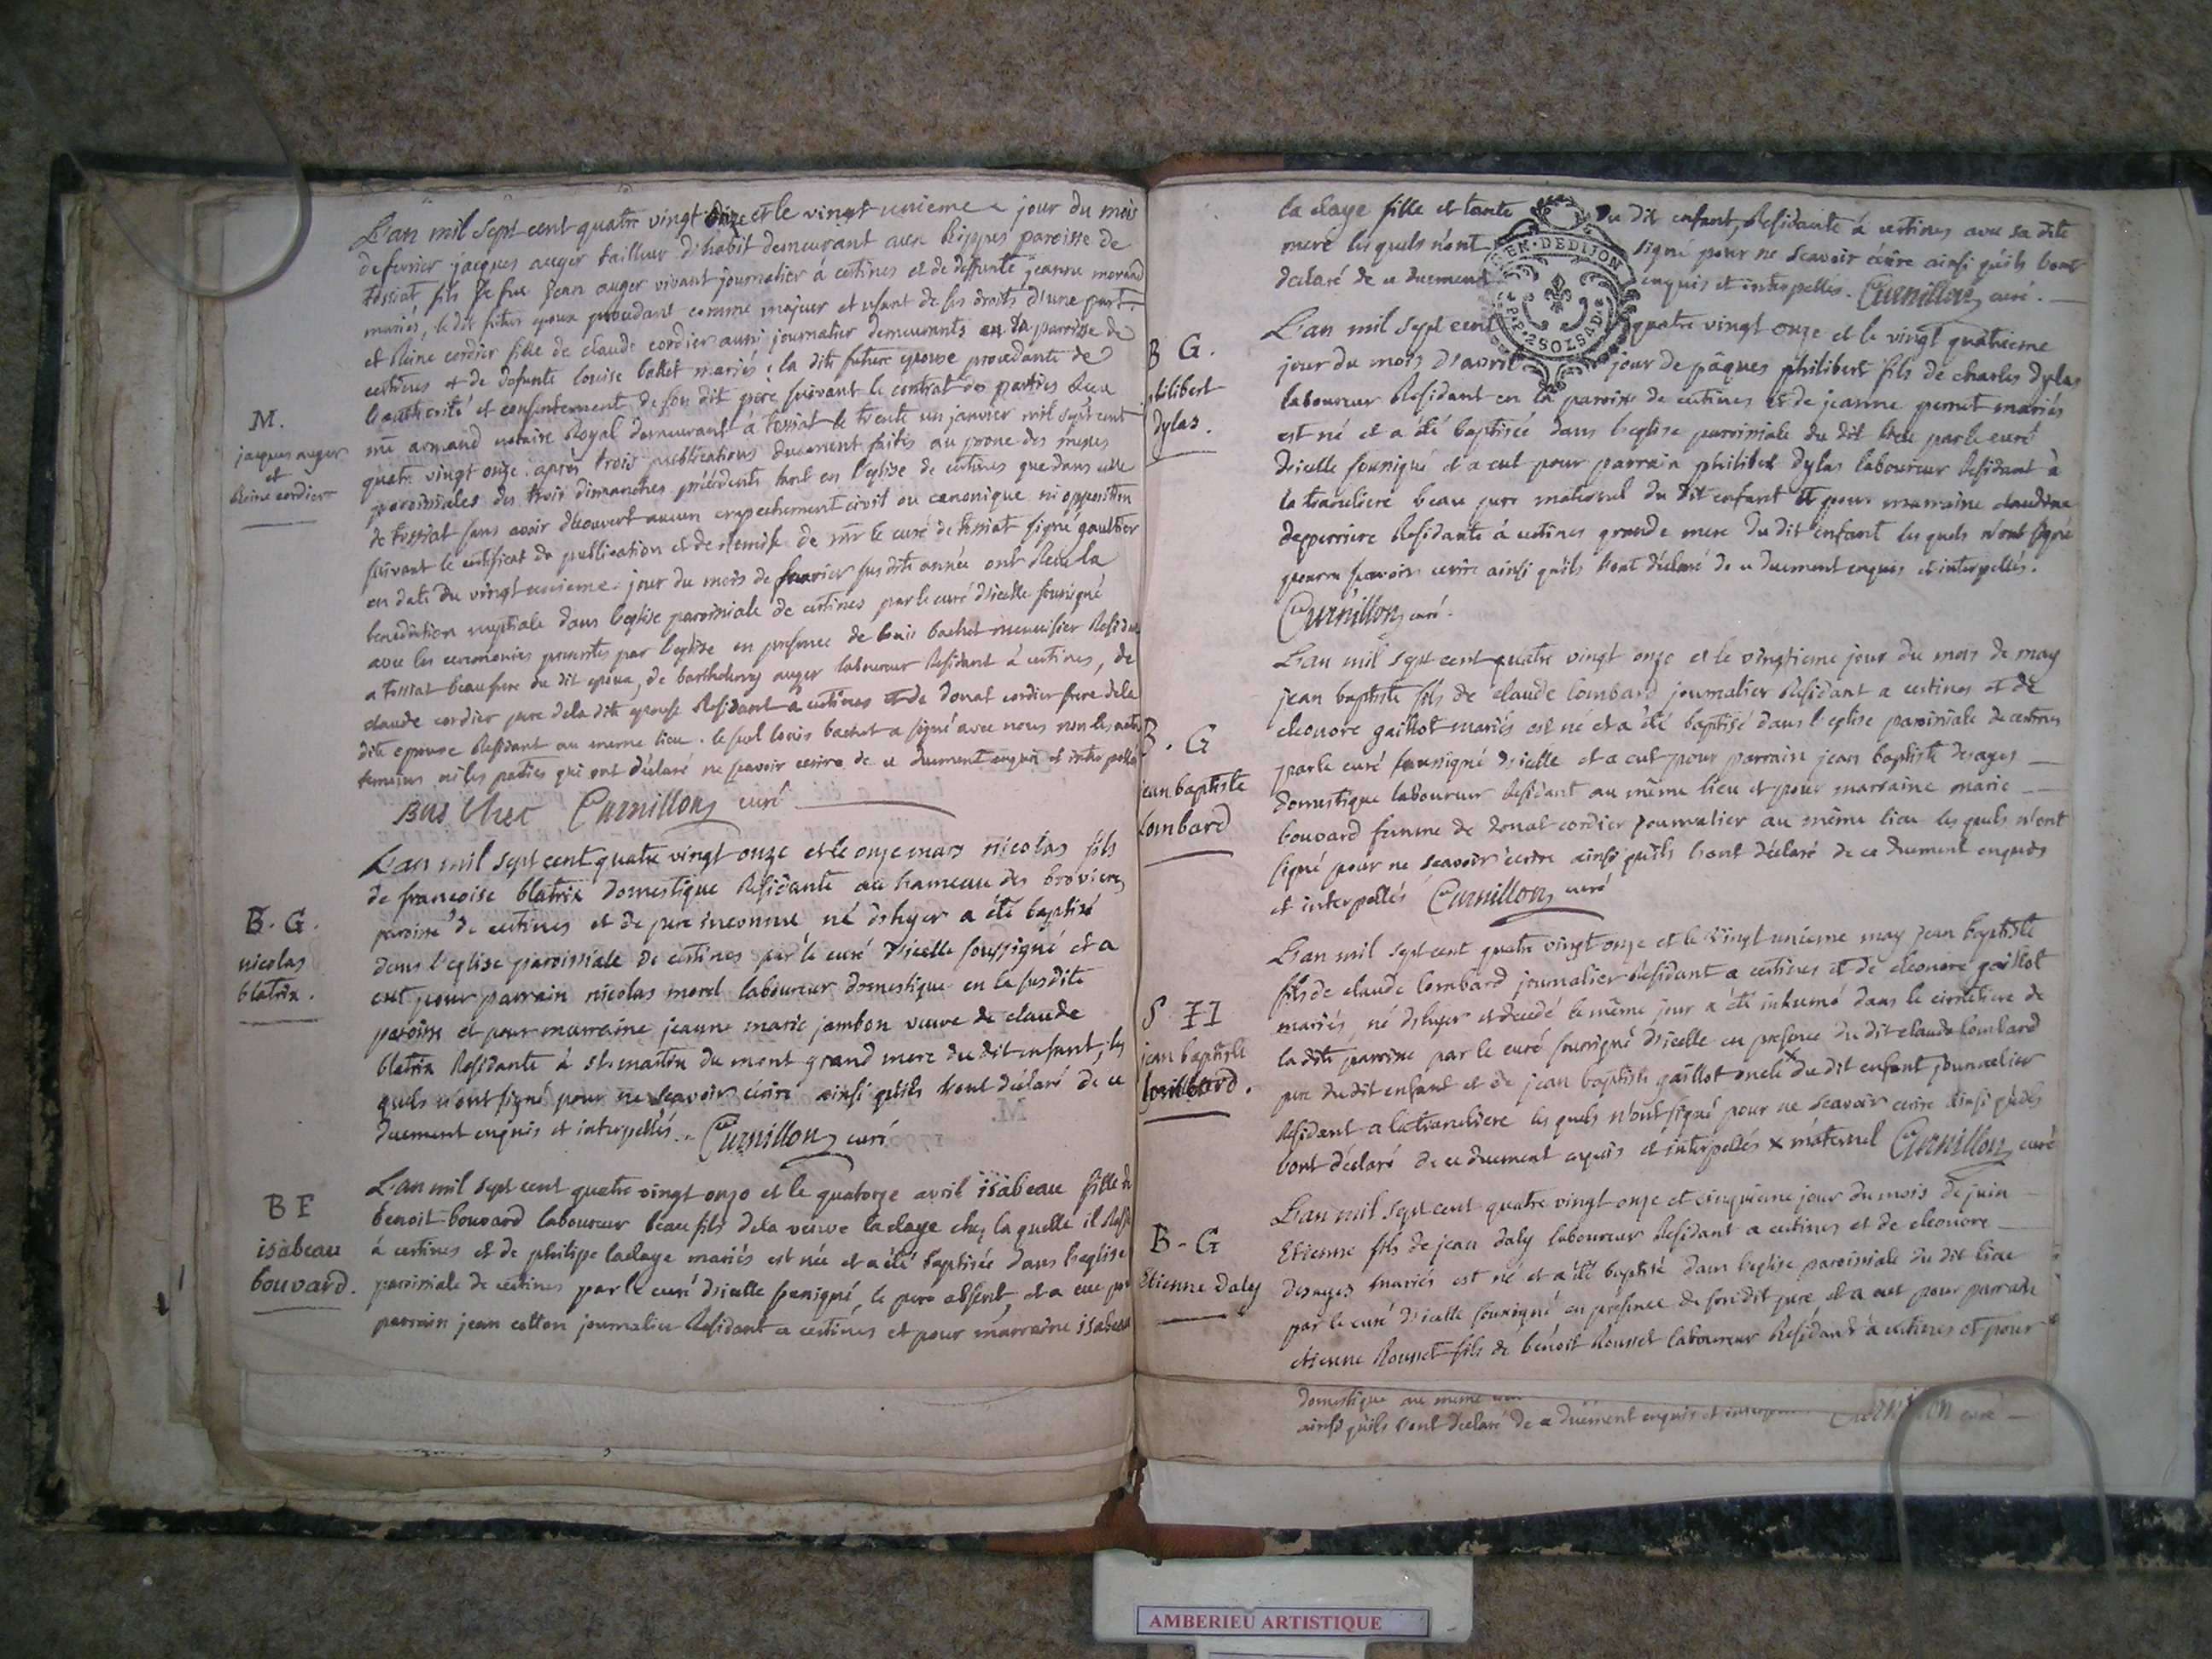 L'an mil sept cent quatre vingt onze et le vingt unieme jour du mois
de fevrier jacques auger tailleur d'habit demeurant aux Rippes paroisse de
tossiat fils de feu jean auger vivant journalier à certines et de deffunte jeanne
mariés, le dit futur epoux procedant comme majeur et usant de ses droits d'une part
et Reine cordier fille de claude cordier aussi journalier demeurants en la paroisse de
certines et de defunte louise mariés; la dite future epouse procedante de
l'authorité et consentement de son dit pere suivant le contrat des parties Recu
me armand notaire Royal demeurant à tossiat le trente un janvier mil sept cent
quatre vingt onze. après trois publications duement faites au prone des messes
paroissiales des trois dimanches précédents tant en l'eglise de certines que dans celle
de tossiat sans avoir découvert aucun empechement civil ou canonique ni opposition
suivant le certificat de publication et de Remise de mr le curé de tossiat signé gaultier
en date du vingt unieme jour du mois de fevrier susdite année ont Recu la
benediction nuptiale dans l'eglise paroissiale de certines par le curé d'icelle soussigné
avec les ceremonies prescrites par l'eglise en presence de louis bachet menuisier Resident
a tossiat beaufrere du dit epoux, de barthelemy auger laboureur Residant à certines, de
claude cordier pere dela dite epouse Residant à certines et de donat cordier frere dela
dite epouse Residant au meme lieu. le seul louis bachet a signé avec nous non les autres
temoins ni les parties qui ont déclaré ne scavoir ecrire de ce duement enquis et interpellés
Curnillon curé
M.
jacques auger
et
Reine cordier
L'an mil sept cent quatre vingt onze et le onze mars nicolas fils
de francoise blatrix domestique Residante au hameau des brovieres
paroisse de certines et de pere inconnu, né d'hyer a été baptisé
dans l'eglise paroissiale de certines par le curé d'icelle soussigné et a
eut pour parrain nicolas morel laboureur domestique en la susdite
paroisse et pour marraine jeanne marie jambon veuve de claude
blatrix Residante à st. martin du mont grand mere du dit enfant, les
quels n'ont signé pour ne scavoir écrire ainsi qu'ils l'ont déclaré de ce
duement enquis et interpellés. Curnillon curé
B. G.
nicolas
blatrix.
L'an mil sept cent quatre vingt onze et le quatorze avril isabeau fille de
benoit bouvard laboureur beau fils dela veuve laclaye chez la quelle il Reside
à certines et de philippe laclaye mariés est née et a été baptisée dans l'eglise
paroissiale de certines par le curé d'icelle soussigné, le pere absent, et a eue pour
parrain jean cotton journalier Residant a certines et pour marraine isabeau
B F
isabeau
bouvard.
la claye fille et tante du dit enfant, Residante à certines avec sa dite
mere les quels n'ont signé pour ne scavoir écrire ainsi qu'ils l'ont
declaré de ce duement enquis et interpellés. Curnillon curé.
GEN. DE DIJON
P.P. 2 SOLS 8 D.
L'an mil sept cent quatre vingt onze et le vingt quatrieme
jour du mois d'avril jour de pâques philibert fils de charles dylas
laboureur Residant en la paroisse de certines et de jeanne perret mariés
est né et a été baptisé dans l'eglise paroissiale du dit lieu par le curé
d'icelle soussigné et a eut pour parrain philibert dylas laboureur Residant à
la trancliere beau pere maternel du dit enfant et pour marraine claudine
deperriere Residante à certines grande mere du dit enfant les quels n'ont signé
pour scavoir ecrire ainsi qu'ils l'ont déclaré de ce duement enquis et interpellés.
Curnillon curé.
B G.
philibert
dylas.
L'an mil sept cent quatre vingt onze et le vingtieme jour du mois de may
jean baptiste fils de claude lombard journalier Residant a certines et de
eleonore gaillot mariés est né et a été baptisé dans l'eglise paroissiale de certines
par le curé soussigné d'icelle et a eut pour parrain jean baptiste desages
domestique laboureur Residant au même lieu et pour marraine marie
bouvard femme de donat cordier journalier au même lieu les quels n'ont
signé pour ne scavoir écrire ainsi qu'ils l'ont déclaré de ce duement enquis
et interpellés Curnillon curé
B. G
jean baptiste
Lombard
L'an mil sept cent quatre vingt onze et le vingt unieme may jean baptiste
fils de claude lombard journalier Résidant a certines et de eleonore gaillot
mariés, né d'hyer et decedé le même jour a été inhumé dans le cimetiere de
la dite paroisse par le curé soussigné d'icelle en presence du dit claude lombard
pere du dit enfant et de jean baptiste gaillot oncle x du dit enfant journalier
Residant a la trancliere les quels n'ont signé pour ne scavoir ecrire ainsi qu'ils
l'ont déclaré de ce duement enquis et interpellés x maternel Curnillon curé
S
jean baptiste
lombard.
L'an mil sept cent quatre vingt onze et cinquieme jour du mois de juin
Etienne fils de jean daly laboureur Residant a certines et de eleonore
desages mariés est né et a été baptisé dans l'eglise paroissiale du dit lieu
par le curé d'icelle soussigné en presence de son dit pere et a eut pour parrain
etienne Rousset fils de benoit Rousset laboureur Residant à certines et pour
B - G
Etienne daly
domestique au meme lieu
ainsi qu'ils l'ont declaré de ce duement enquis et Curnillon curé
AMBERIEU ARTISTIQUE